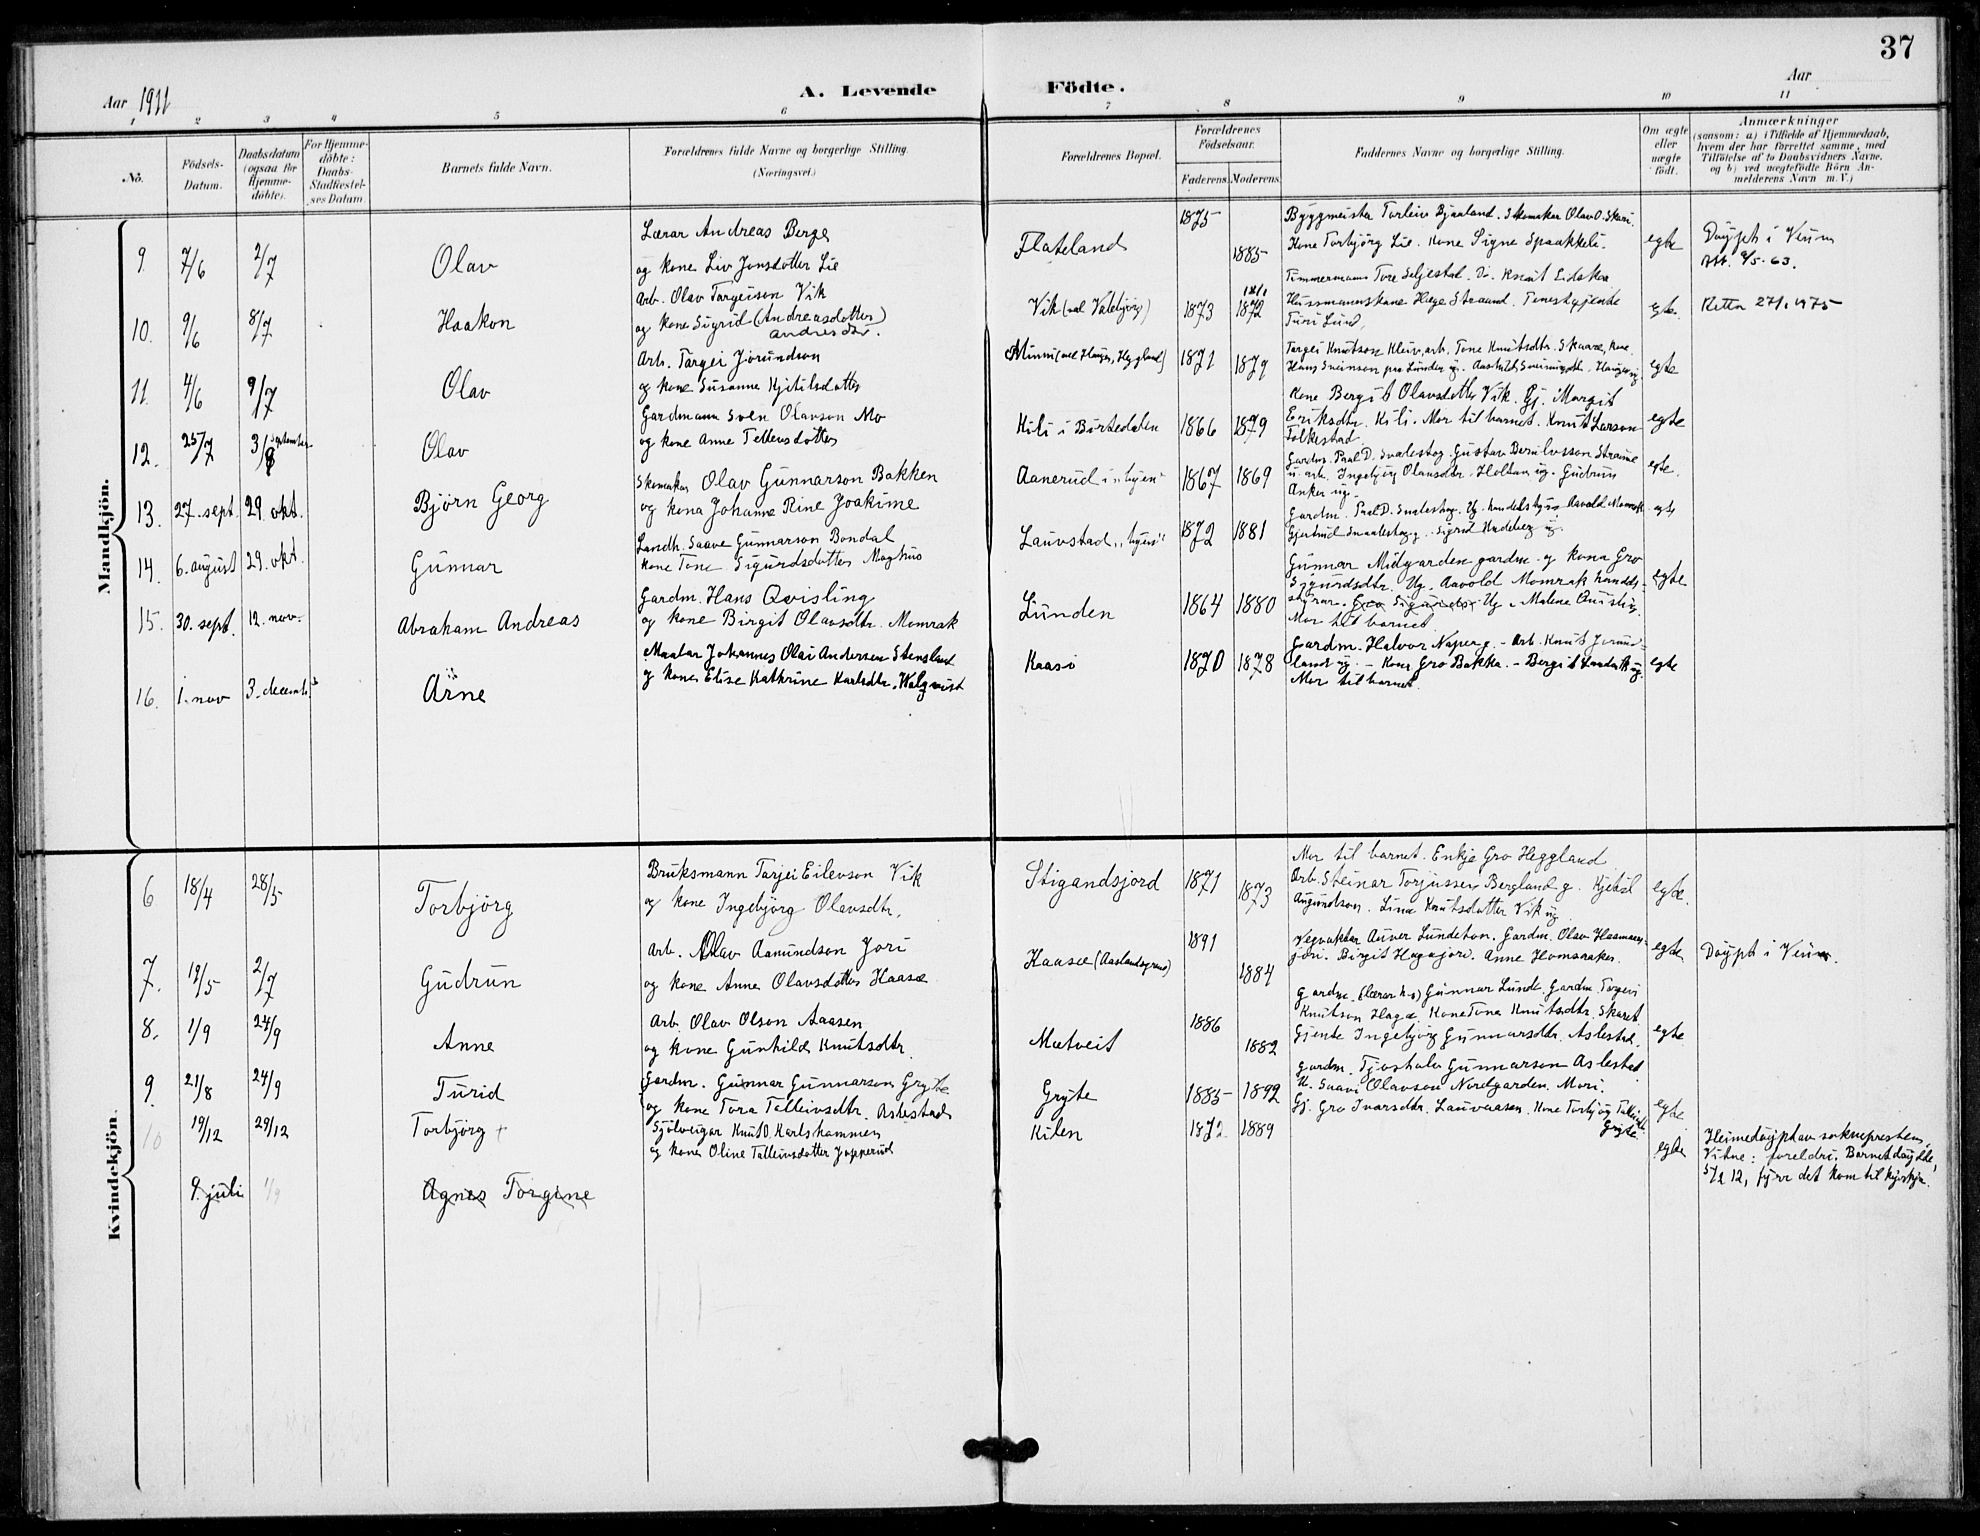 37
Aar 1911
A. Levende Födte.
Aar
1 2 3 4 5 6 7 8 9 10 11
No.
Födsels-Datum.
Daabsdatum (ogsaa för Hjemme-döbte).
For Hjemme-döbte: Daabs-Stadfæstel-ses Datum.
Barnets fulde Navn.
Forældrenes fulde Navne og borgerlige Stilling.
(Næringsvei.)
Forældrenes Bopæl.
Forældrenes Födselsaar.
Faderens. Moderens.
Faddernes Navne og borgerlige Stilling.
Om ægte eller uægte födt.
Anmærkninger
(saasom: a) i Tilfælde af Hjemmedaab, hvem der har forrettet samme, med Tilföielse af to Daabsvidners Navne, og b) ved uægtefödte Börn Anmelderens Navn m. V.)
Mandkjön.
9. 7/6 2/7 Olav
Lærar Andreas Berge
og kone Liv Jonsdotter Lie
Flateland 1875 1885
Byggmeister Torleiv Bjaaland. Skomakar Olav O. Skari.
Kone Torbjörg Lie. Kone Signe Spaakkeli.
egte
Döypt i Veum
Att. 9/5-63.
10. 9/6 8/7 Haakon
Arb. Olav Torgeirson Vik
og kone Sigrid (Andreasdotter)
andresdtr.
Vik (ved Valebjörg) 1873 1872
Timmermann Tore Seljestad. Do. Knut Eidskor
Husmannskone Hæge Straand. Tenestgjente
Turi Lund.
egte.
Retta 27/1 1975
11. 4/6 9/7 Olav
Arb. Targei Jörundson
og kone Susanne Kjetilsdotter
1871 1879
Targei Knutson Kleiv, arb. Tone Knutsdtr. Skaaræ, kone.
egte
12. 25/7 3/8 september Olav
Gardmann Sven Olavson Mo
og kone Anne Tellevsdotter
Kili i Börtedalen 1866 1879
Kone Bergit Olavsdotter Vik. Gj. Margit
Eriksdtr. Kili. Mor til barnet. Knut Larson
Folkestad.
egte
13. 27. sept. 29. okt. Björn Georg
Skomakar Olav Gunnarson Bakken
og kona Johanne Rine Joakime
Aanerud i "byen" 1867 1869
Gardm. Paal D. Svalestog. Gustav Bernilvsson Straume
u. arb. Ingebjörg Olavsdtr. Holtan ug. Gudrun
Anker ug.
egte.
14. 6. august 29. okt. Gunnar
Landh. Saave Gunnarson Bondal
kone Tone Sigurdsdotter Maghus
Lauvstad "byen" 1872 1881
Gardm. Paal D. Svalestog. Ug. handelstyrar Aavold Momrak
egte
15. 30. sept. 12. nov. Abraham Andreas
Gardm. Hans Qvisling
og kone Birgit Olavsdtr. Momrak
Lunden 1864 1880
Gunnar Midgarden gardm. og kona Gro
Sigurdsdtr. Ug. Aavold Momrak handels-
styrar. Gro Sigurdsdtr Ug. Malene Quisling.
Mor til barnet
egte
16. 1. nov 3. decemb. Arne
Maalar Johannes Olai Andersen Stensland
og kone Elise Kathrine Karlsdtr. Walqvist
Kaasi 1870 1878
Gardm. Halvor Naper g. - Arb. Knut Jorund-
land ug. - Kone Gro Bakka. - Bergit Landsverk ug.
Mor til barnet.
egte
Kvindekjön.
6 18/4 28/5 Torbjörg
Bruksmann Tarjei Eilevson Vik
og kone Ingebjörg Olavsdtr.
Stigandsjord 1871 1873
Mor til barnet. Enkje Gro Heggland
Arb. Steinar Torjussen Bergland g. Kjetil
Augundson. Line Knutsdotter Vik ug.
egte.
7. 19/5 2/7 Gudrun
Arb. Olav Aanundson Jori
og kone Anne Olavsdotter Haasæ
Haasæ (Aaslandsgrend) 1891 1884
Vegvaktar Auver Lundeton. Gardm. Olav Haamaem-
jori. Birgit Hagajord. Anne Homsaaker.
egte
Döypt i Veum.
8. 1/9 24/9 Anne
Arb. Olav Olson Aasen
og kone Gunhild Knutsdtr.
Mætveit 1886 1882
Gardm. (lærar m.m) Gunnar Lunde. Gardm. Torgeir
Knutson Hagæ. Kone Tone Knutsdtr. Skaret
Gjente Ingebjörg Gunnarsdtr. Aslestad.
egte
9. 21/8 24/9 Turid
Gardm. Gunnar Gunnarson Gryte
og kone Tora Talleivsdtr. Aslestad
Gryte 1885 1892
Gardm. Tjostolv Gunnarson Aslestad
U. Saavi Olavson Nordgarden. Mori.
Gj. Gro Ivarsdtr. Lauvaasen. Kone Torbjög Talleivsdtr.
Gryte.
egte.
10 19/12 29/12 Torbjörg +
Sjölveigar Knut O. Karlshammer
og kone Oline Talleivsdotter Jupperud
Kilen 1872 1889
egte
Heimedöypt av soknepresten.
Vitne: foreldri. Barnet döydde,
5/2 12, fyrr det kom til kyrkja.
9. juli 1/9 Agnes Torgine